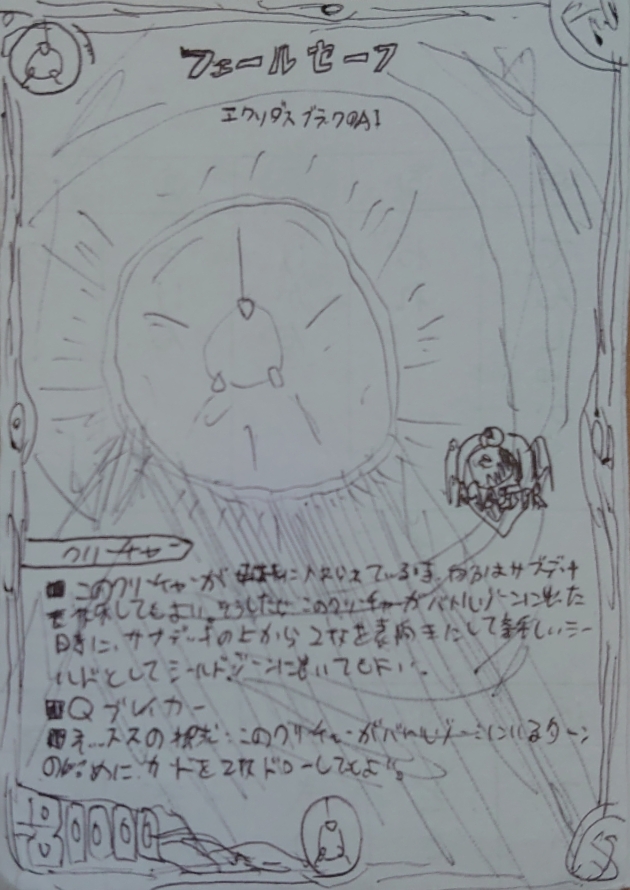 フェールセーフ
エクソダスブラックのAI
MASTER
クリーチャー
■このクリーチャーが えているは、 はサブデッキ
してもよい。そうしたら、このクリーチャーがバトルゾーンに出た
時に、サブデッキの上から2枚を表向きにして新しいシー
ルドとしてシールドゾーンに置いてもよい。
■Qブレイカー
■ の :このクリーチャーがバトルゾーンにいるターン
のはじめにカードを2枚ドローしてもよい。
0000